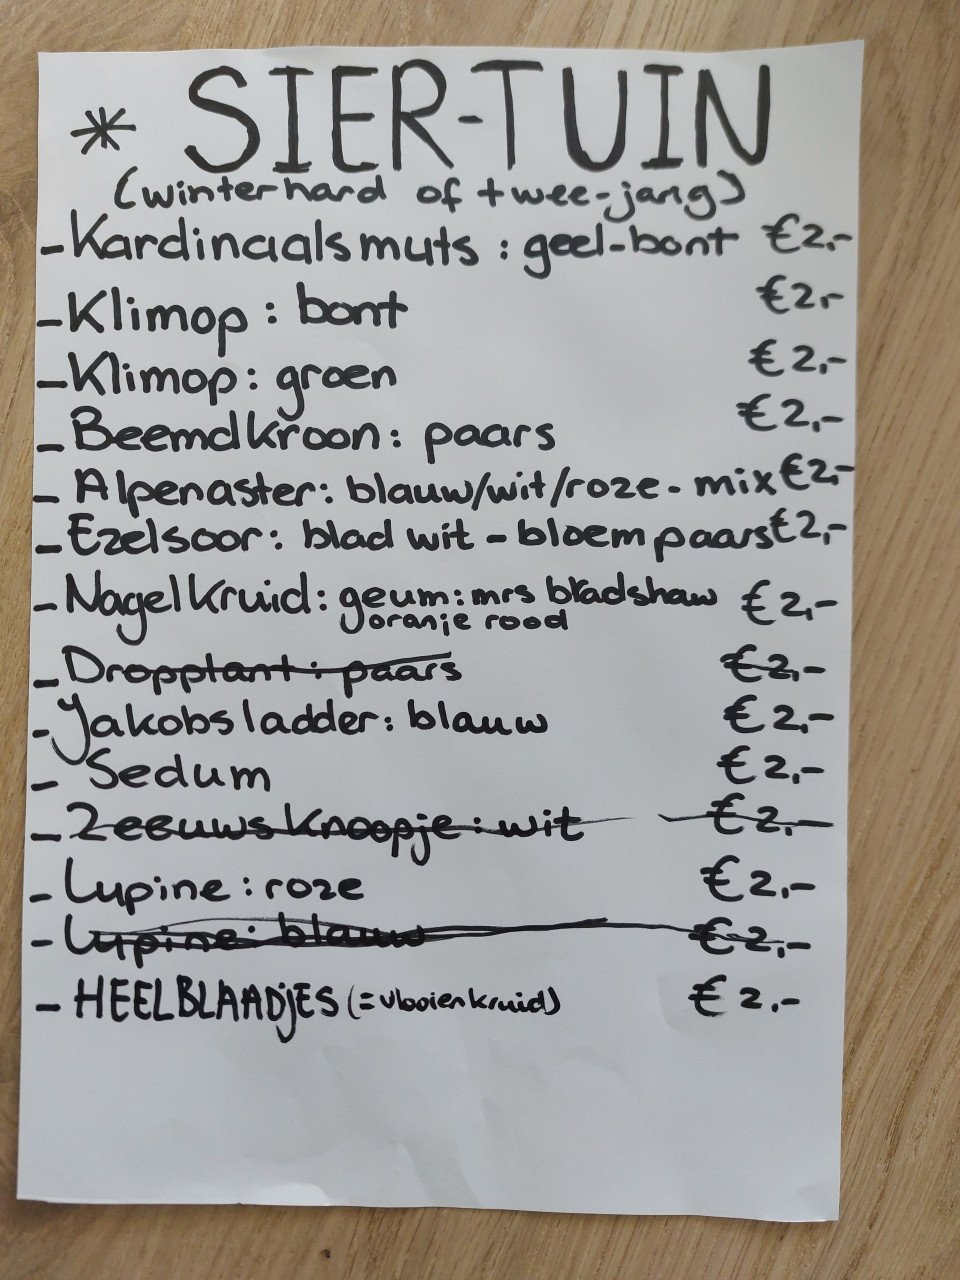 * SIER-TUIN
(winterhard of twee-jarig)
- Kardinaalsmuts : geel-bont €2,-
- Klimop : bont €2,-
- Klimop : groen €2,-
- Beemdkroon : paars €2,-
- Alpenaster : blauw/wit/roze - mix €2,-
- Ezelsoor : blad wit - bloem paars €2,-
- Nagelkruid : geum : mrs bradshaw €2,-
oranje rood
- Dropplant : paars €2,-
- Jakobsladder : blauw €2,-
- Sedum €2,-
- Zeeuws Knoopje : wit €2,-
- Lupine : roze €2,-
- Lupine : blauw €2,-
- HEELBLAADjES (= vlooienkruid) €2,-